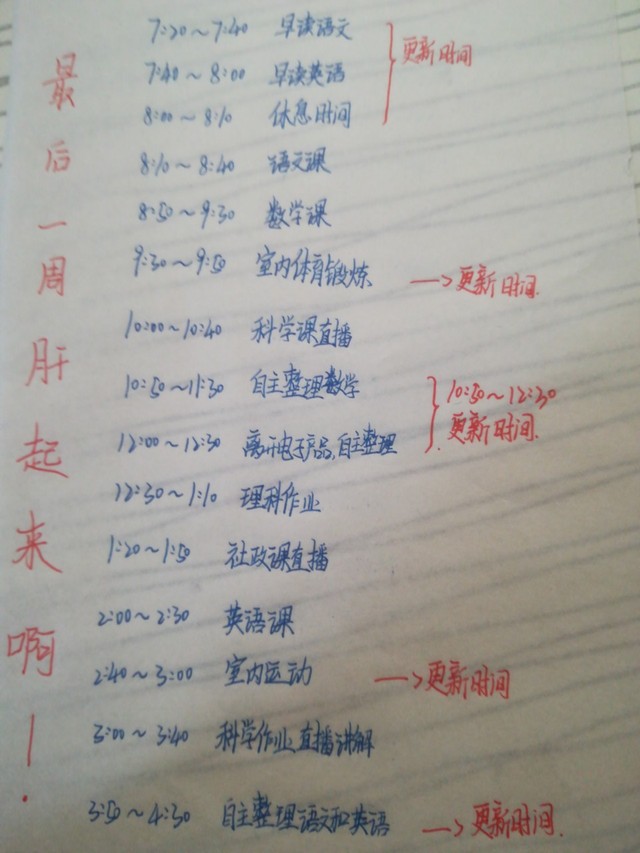 最后一周肝起来啊!
7:20~7:40 早读语文
7:40~8:00 早读英语
更新时间
8:00~8:10 休息时间
8:10~8:40 语文课
8:50~9:30 数学课
9:30~9:50 室内体育锻炼 —>更新时间.
10:00~10:40 科学课直播
10:50~11:30 自主整理数学
10:50~12:30
更新时间.
12:00~12:30 离开电子产品,自主整理
12:30~1:10 理科作业
1:20~1:50 社政课直播
2:00~2:30 英语课
2:40~3:00 室内运动 —>更新时间
3:00~3:40 科学作业直播讲解
3:50~4:30 自主整理语文和英语 —>更新时间.